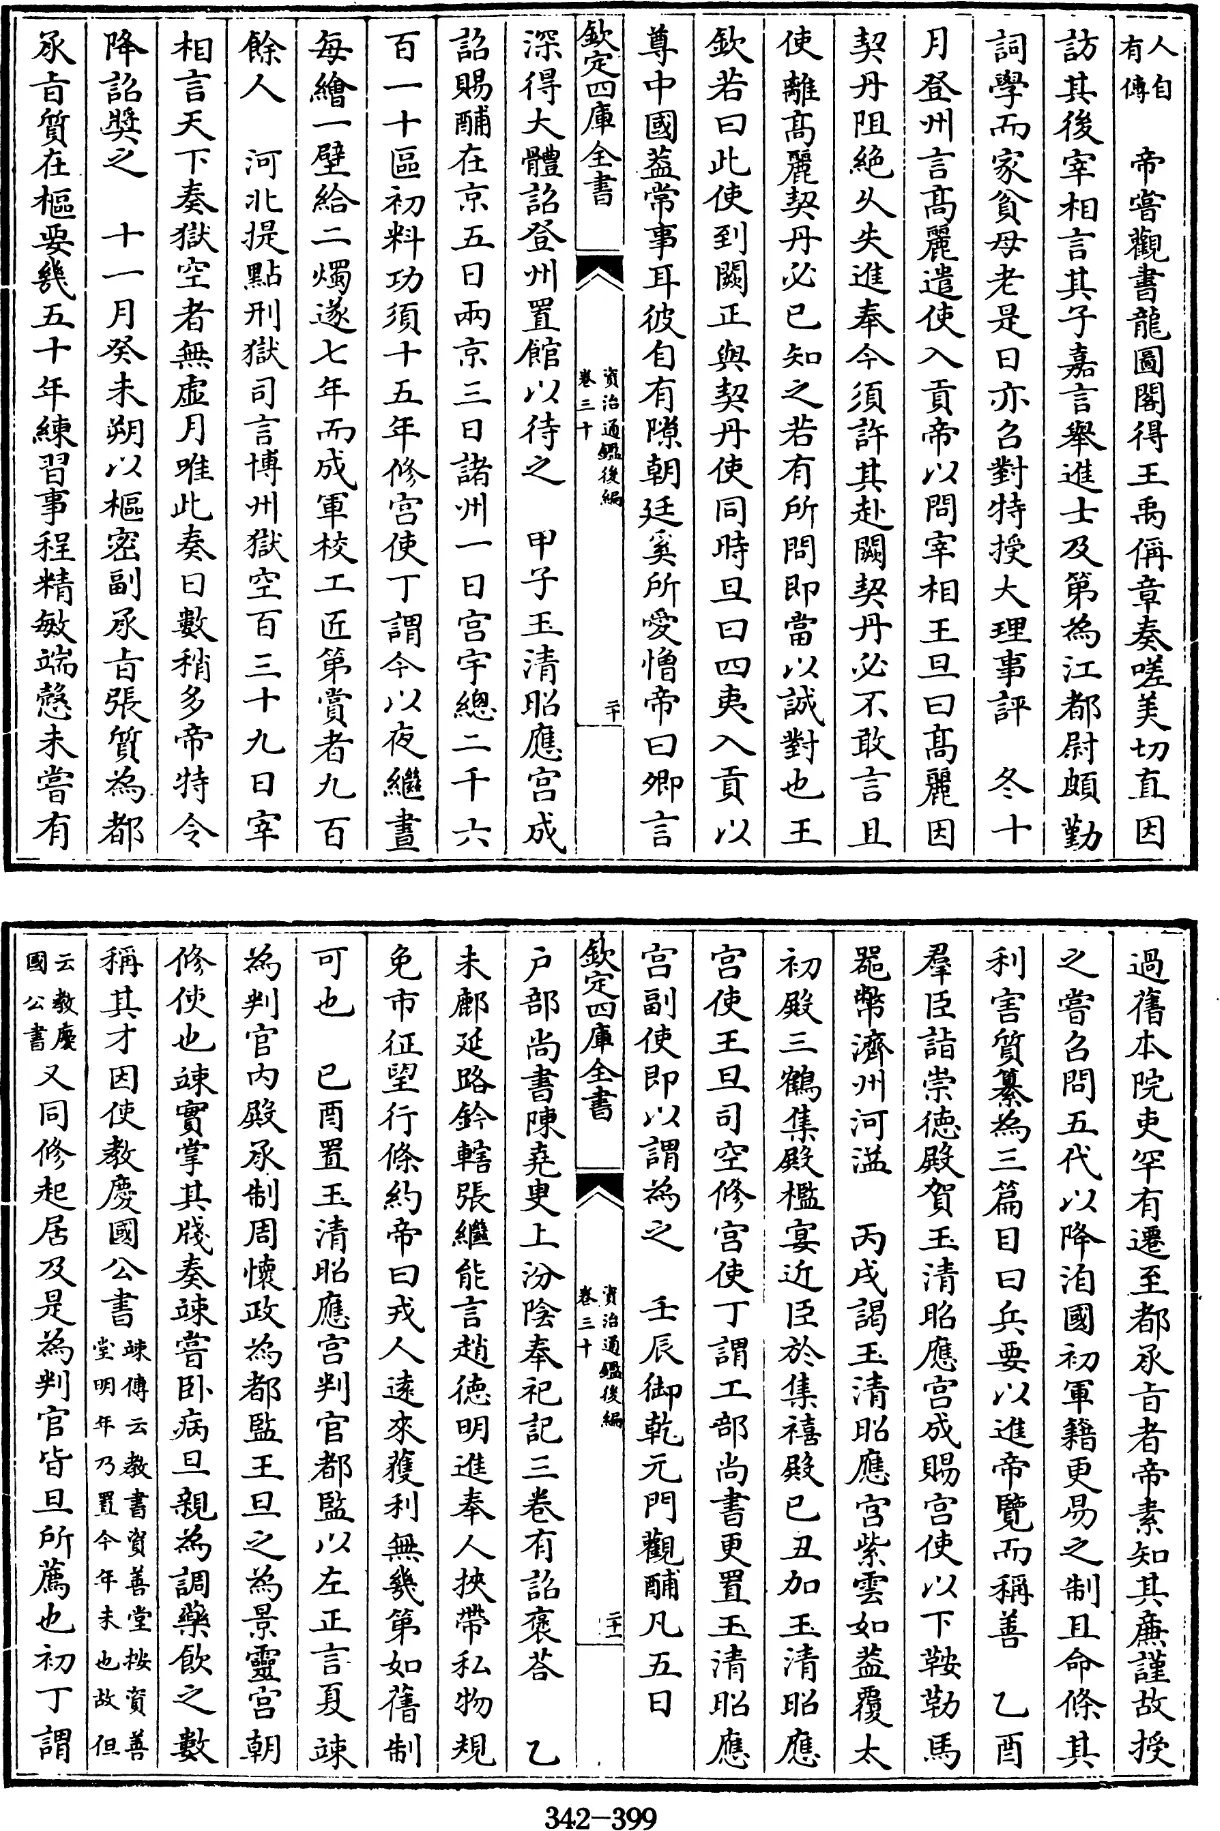 人自有傳　帝嘗觀書龍圖閣得王禹偁章奏嗟美切直因
訪其後宰相言其子嘉言舉進士及第為江都尉頗勤
詞學而家貧母老是日亦召對特授大理事評　冬十
月登州言髙麗遣使入貢帝以問宰相王旦曰髙麗因
契丹阻絶久失進奉今須許其赴闕契丹必不敢言且
使離髙麗契丹必已知之若有所問即當以誠對也王
欽若曰此使到闕正與契丹使同時旦曰四夷入貢以
尊中國葢常事耳彼自有隙朝廷奚所愛憎帝曰卿言
欽定四庫全書　資治通鑑後編卷三十　二十
深得大體詔登州置館以待之　甲子玉清昭應宮成
詔賜酺在京五日兩京三日諸州一日宮宇總二千六
百一十區初料功須十五年修宮使丁謂令以夜繼晝
每繪一壁給二燭遂七年而成軍校工匠第賞者九百
餘人　河北提點刑獄司言博州獄空百三十九日宰
相言天下奏獄空者無虛月唯此奏日數稍多帝特令
降詔奬之　十一月癸未朔以樞密副承旨張質為都
承旨質在樞要幾五十年練習事程精敏端慤未嘗有
過舊本院吏罕有遷至都承旨者帝素知其廉謹故授
之嘗召問五代以降洎國初軍籍更易之制且命條其
利害質纂為三篇目曰兵要以進帝覽而稱善　乙酉
羣臣詣崇德殿賀玉清昭應宮成賜宮使以下鞍勒馬
器幣濟州河溢　丙戌謁玉清昭應宮紫雲如葢覆太
初殿三鶴集殿檻宴近臣於集禧殿己丑加玉清昭應
宮使王旦司空修宮使丁謂工部尚書更置玉清昭應
宮副使即以謂為之　壬辰御乾元門觀酺凡五日
欽定四庫全書　資治通鑑後編卷三十　二十一
户部尚書陳堯叟上汾陰奉祀記三卷有詔褒荅　乙
未鄜延路鈐轄張繼能言趙德明進奉人挾帶私物規
免市征望行條約帝曰戎人遠來獲利無幾第如舊制
可也　己酉置玉清昭應宮判官都監以左正言夏竦
為判官内殿承制周懷政為都監王旦之為景靈宮朝
修使也竦實掌其牋奏竦嘗卧病旦親為調藥飲之數
稱其才因使教慶國公書竦傳云教書資善堂按資善堂明年乃置今年未也故但
云教慶國公書又同修起居及是為判官皆旦所薦也初丁謂
342-399